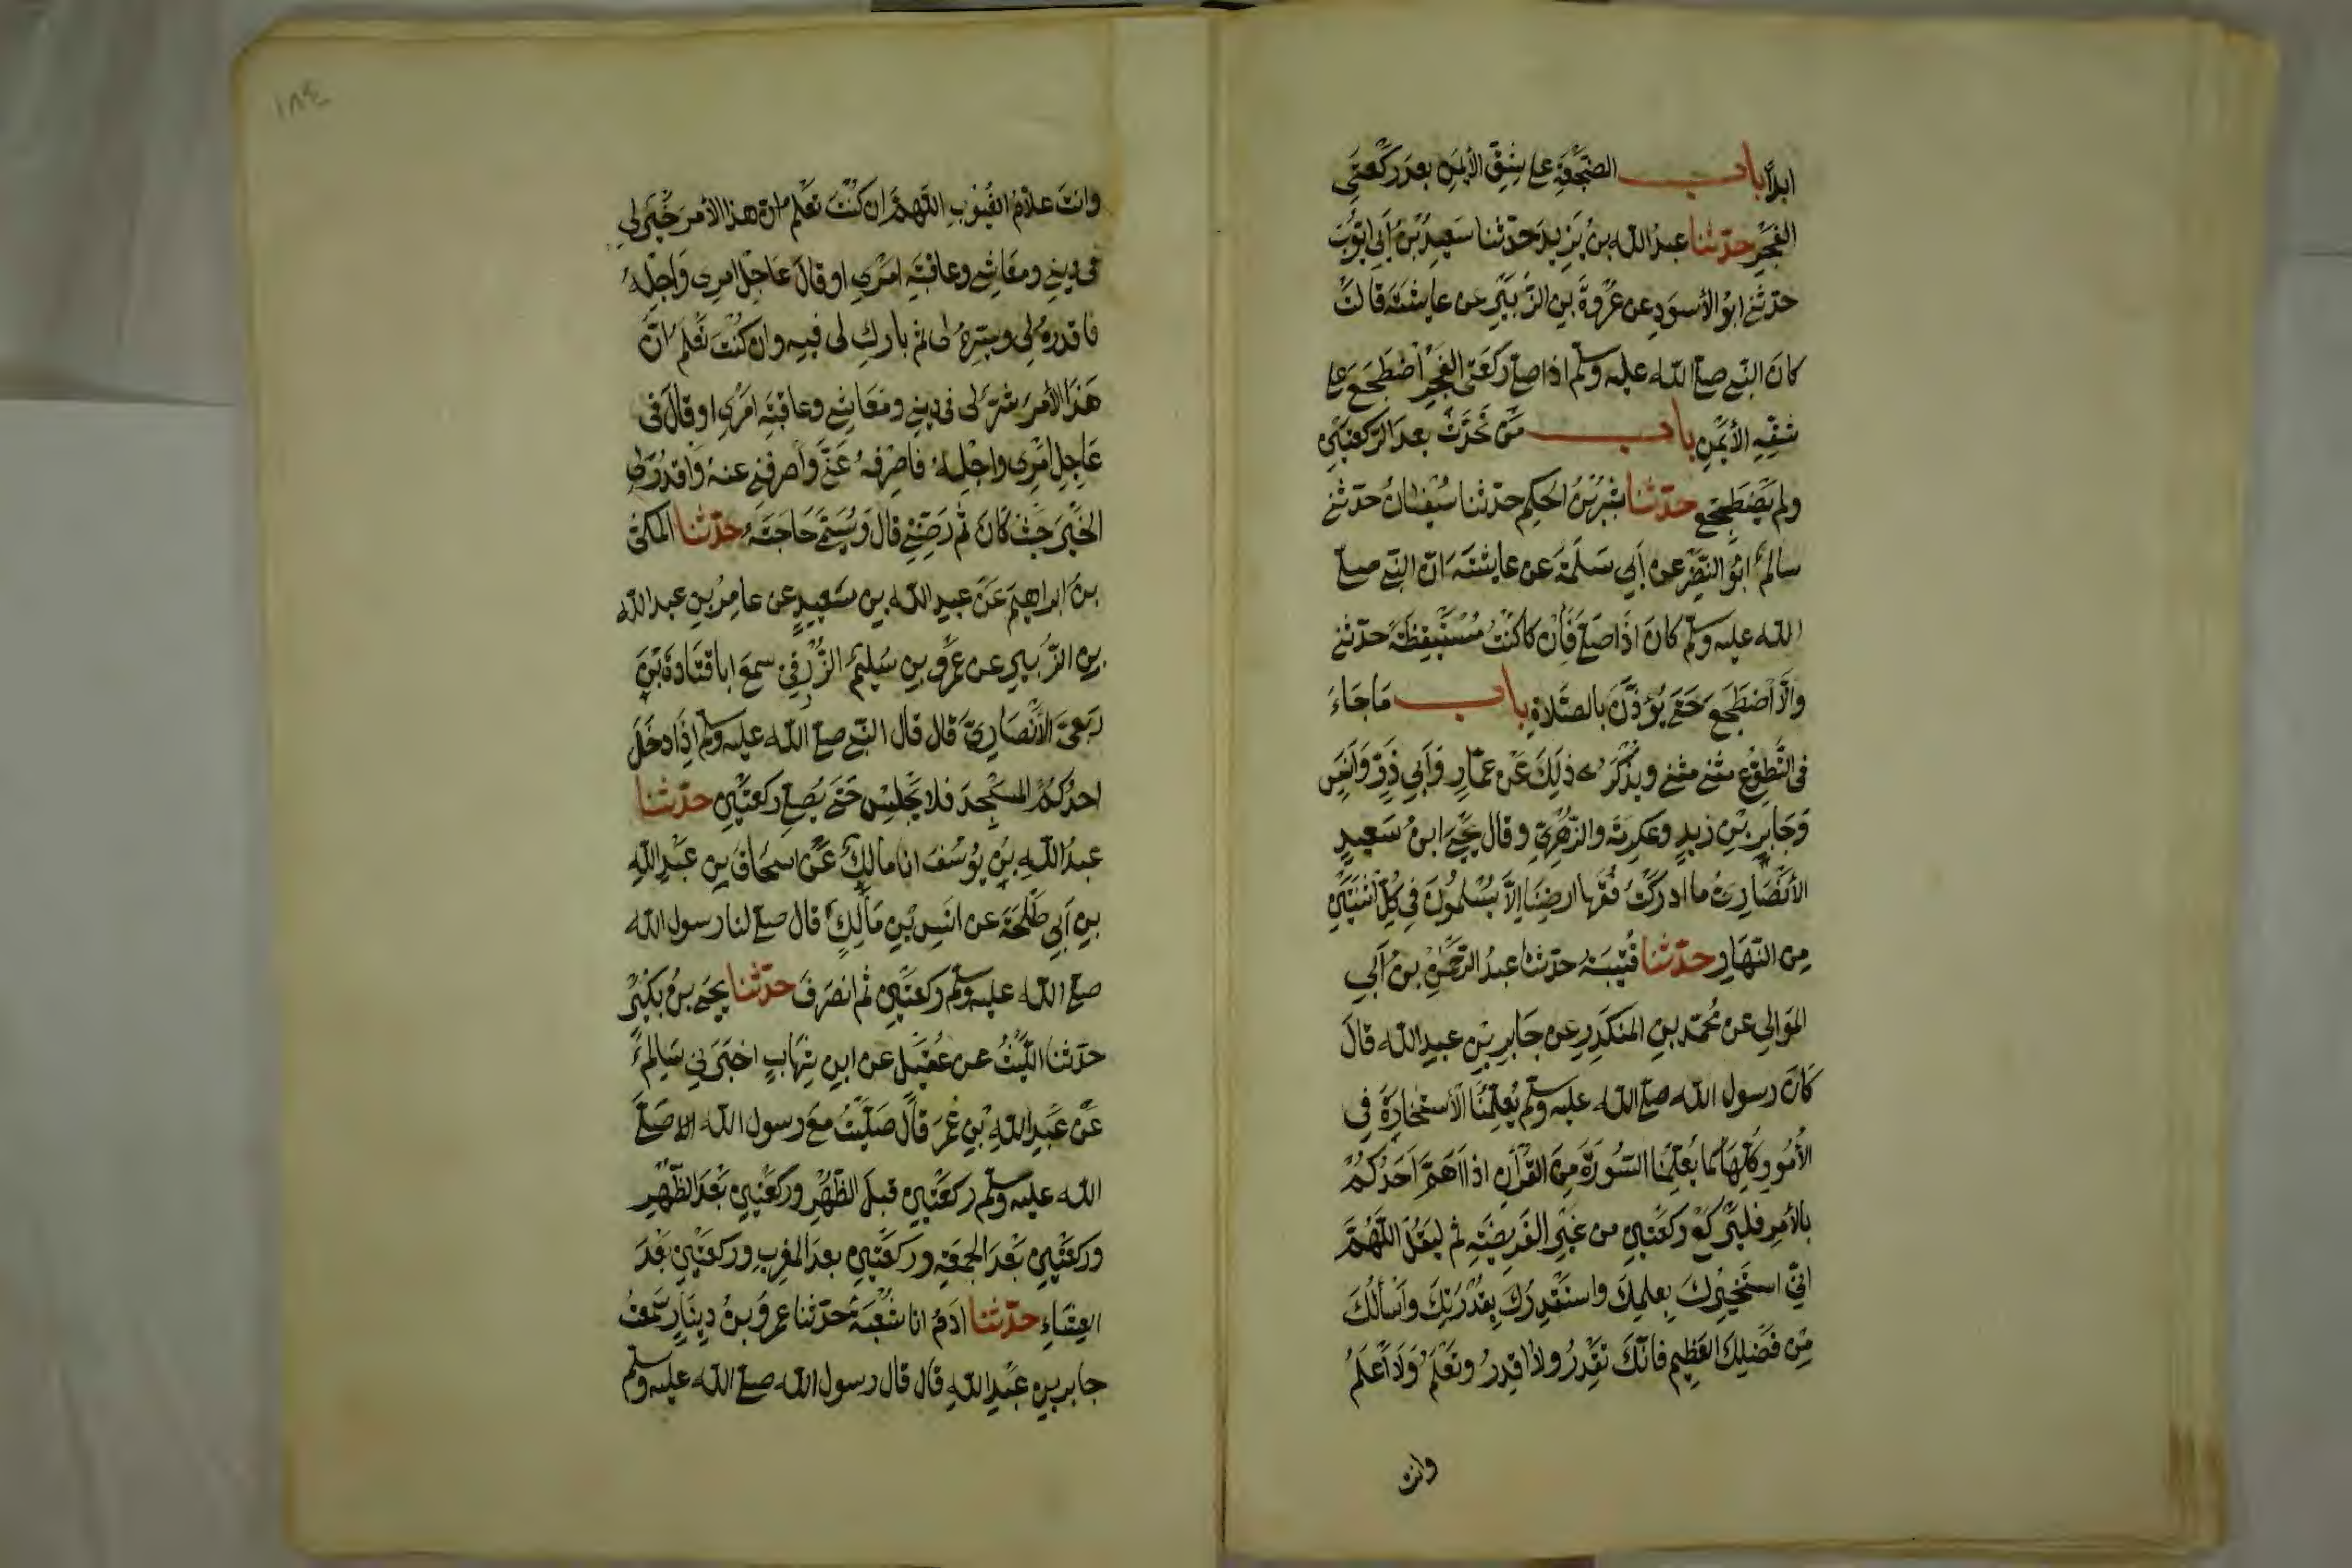 ابدًا باب الضجعة على شق الأيمن بعد ركعتي
الفجر حدّثنا عبد الله بن يزيد حدّثنا سعيد بن أبي ايّوب
حدّثني ابو الأسود عن عروة بن الزّبير عن عايشة قالت
كان النّبي صلى الله عليه وسلم اذا صلى ركعتي الفجر اضطجع على
شقّه الأيمن باب من تحدّث بعد الرّكعتين
ولم يضطجع حدّثنا بشر بن الحكم حدّثنا سفيان حدّثني
سالم ابو النّضر عن أبي سلمة عن عايشة انّ النّبي صلى
الله عليه وسلم كان اذا صلى فإن كنت مستيقظة حدثني
والّا اضطجع حتى يؤذّن بالصّلاة باب ما جاء
في التّطوّع مثنى مثنى ويذكر ذلك عن عمّار وأبي ذرّ وأنس
وجابر بن زيد وعكرمة والزّهريّ وقال يحيى ابن سعيد
الأنصاريّ ما ادركت فقها ارضنا إلّا يسلمون في كلّ اثنتين
من النّهار حدّثنا قتيبة حدّثنا عبد الرّحمن بن أبي
الموالي عن محمّد بن المنكدر عن جابر بن عبد الله قال
كان رسول الله صلى الله عليه وسلم يعلّمنا الأستخارة في
الأمور كلّها كما يعلّمنا السّورة من القرآن اذا اهمّ احدكم
بالأمر فليركع ركعتين من غير الفريضة ثم ليقل اللّهمّ
انّي استخيرك بعلمك واستقدرك بقدرتك وأسألك
من فضلك العظيم فانّك تقدر ولا اقدر وتعلم ولا أعلم
وانت
١٨٤
وانت علّام الغيوب اللّهمّ ان كنت تعلم انّ هذا الأمر خير لي
في ديني ومعاشي وعاقبة امري او قال عاجل امري وآجله
فاقدره لي ويسّره لي ثم بارك لي فيه وان كنت تعلم انّ
هذا الأمر شرّ لي في ديني ومعاشي وعاقبة امري او قال في
عاجل امري وآجله فاصرفه عنّي وأصرفني عنه واقدر لي
الخير حيث كان ثم رضّني قال ويسمّي حاجته حدّثنا المكّي
بن ابراهيم عن عبد الله بن سعيد عن عامر بن عبد الله
بن الزّبير عن عمرو بن سليم الزّرقي سمع ابا قتادة بن
ربعيّ الأنصاريّ قال قال النّبي صلى الله عليه وسلم اذا دخل
احدكم المسجد فلا يجلس حتى يصلّي ركعتين حدّثنا
عبد الله بن يوسف انا مالك عن اسحاق بن عبد الله
بن أبي طلحة عن انس بن مالك قال صلى لنا رسول الله
صلى الله عليه وسلم ركعتين ثم انصرف حدّثنا يحيى بن بكير
حدّثنا اللّيث عن عقيل عن ابن شهاب اخبرني سالم
عن عبد الله بن عمر قال صلّيت مع رسول الله صلّى
الله عليه وسلم ركعتين قبل الظّهر وركعتين بعد الظّهر
وركعتين بعد الجمعة وركعتين بعد المغرب وركعتين بعد
العشاء حدّثنا آدم انا شعبة حدّثنا عمرو بن دينار سمعت
جابر بن عبد الله قال قال رسول الله صلى الله عليه وسلم